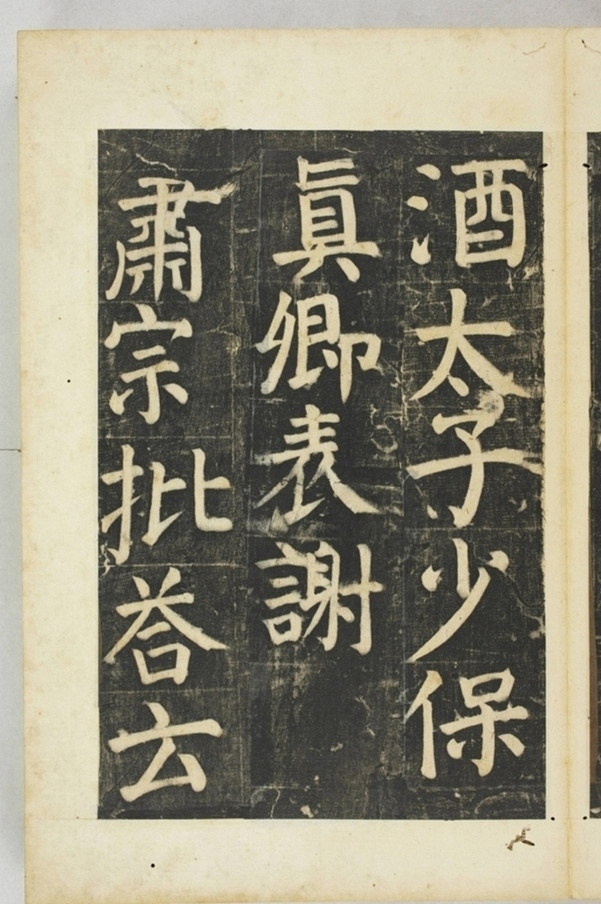 酒太子少保
眞卿表謝
肅宗批荅云